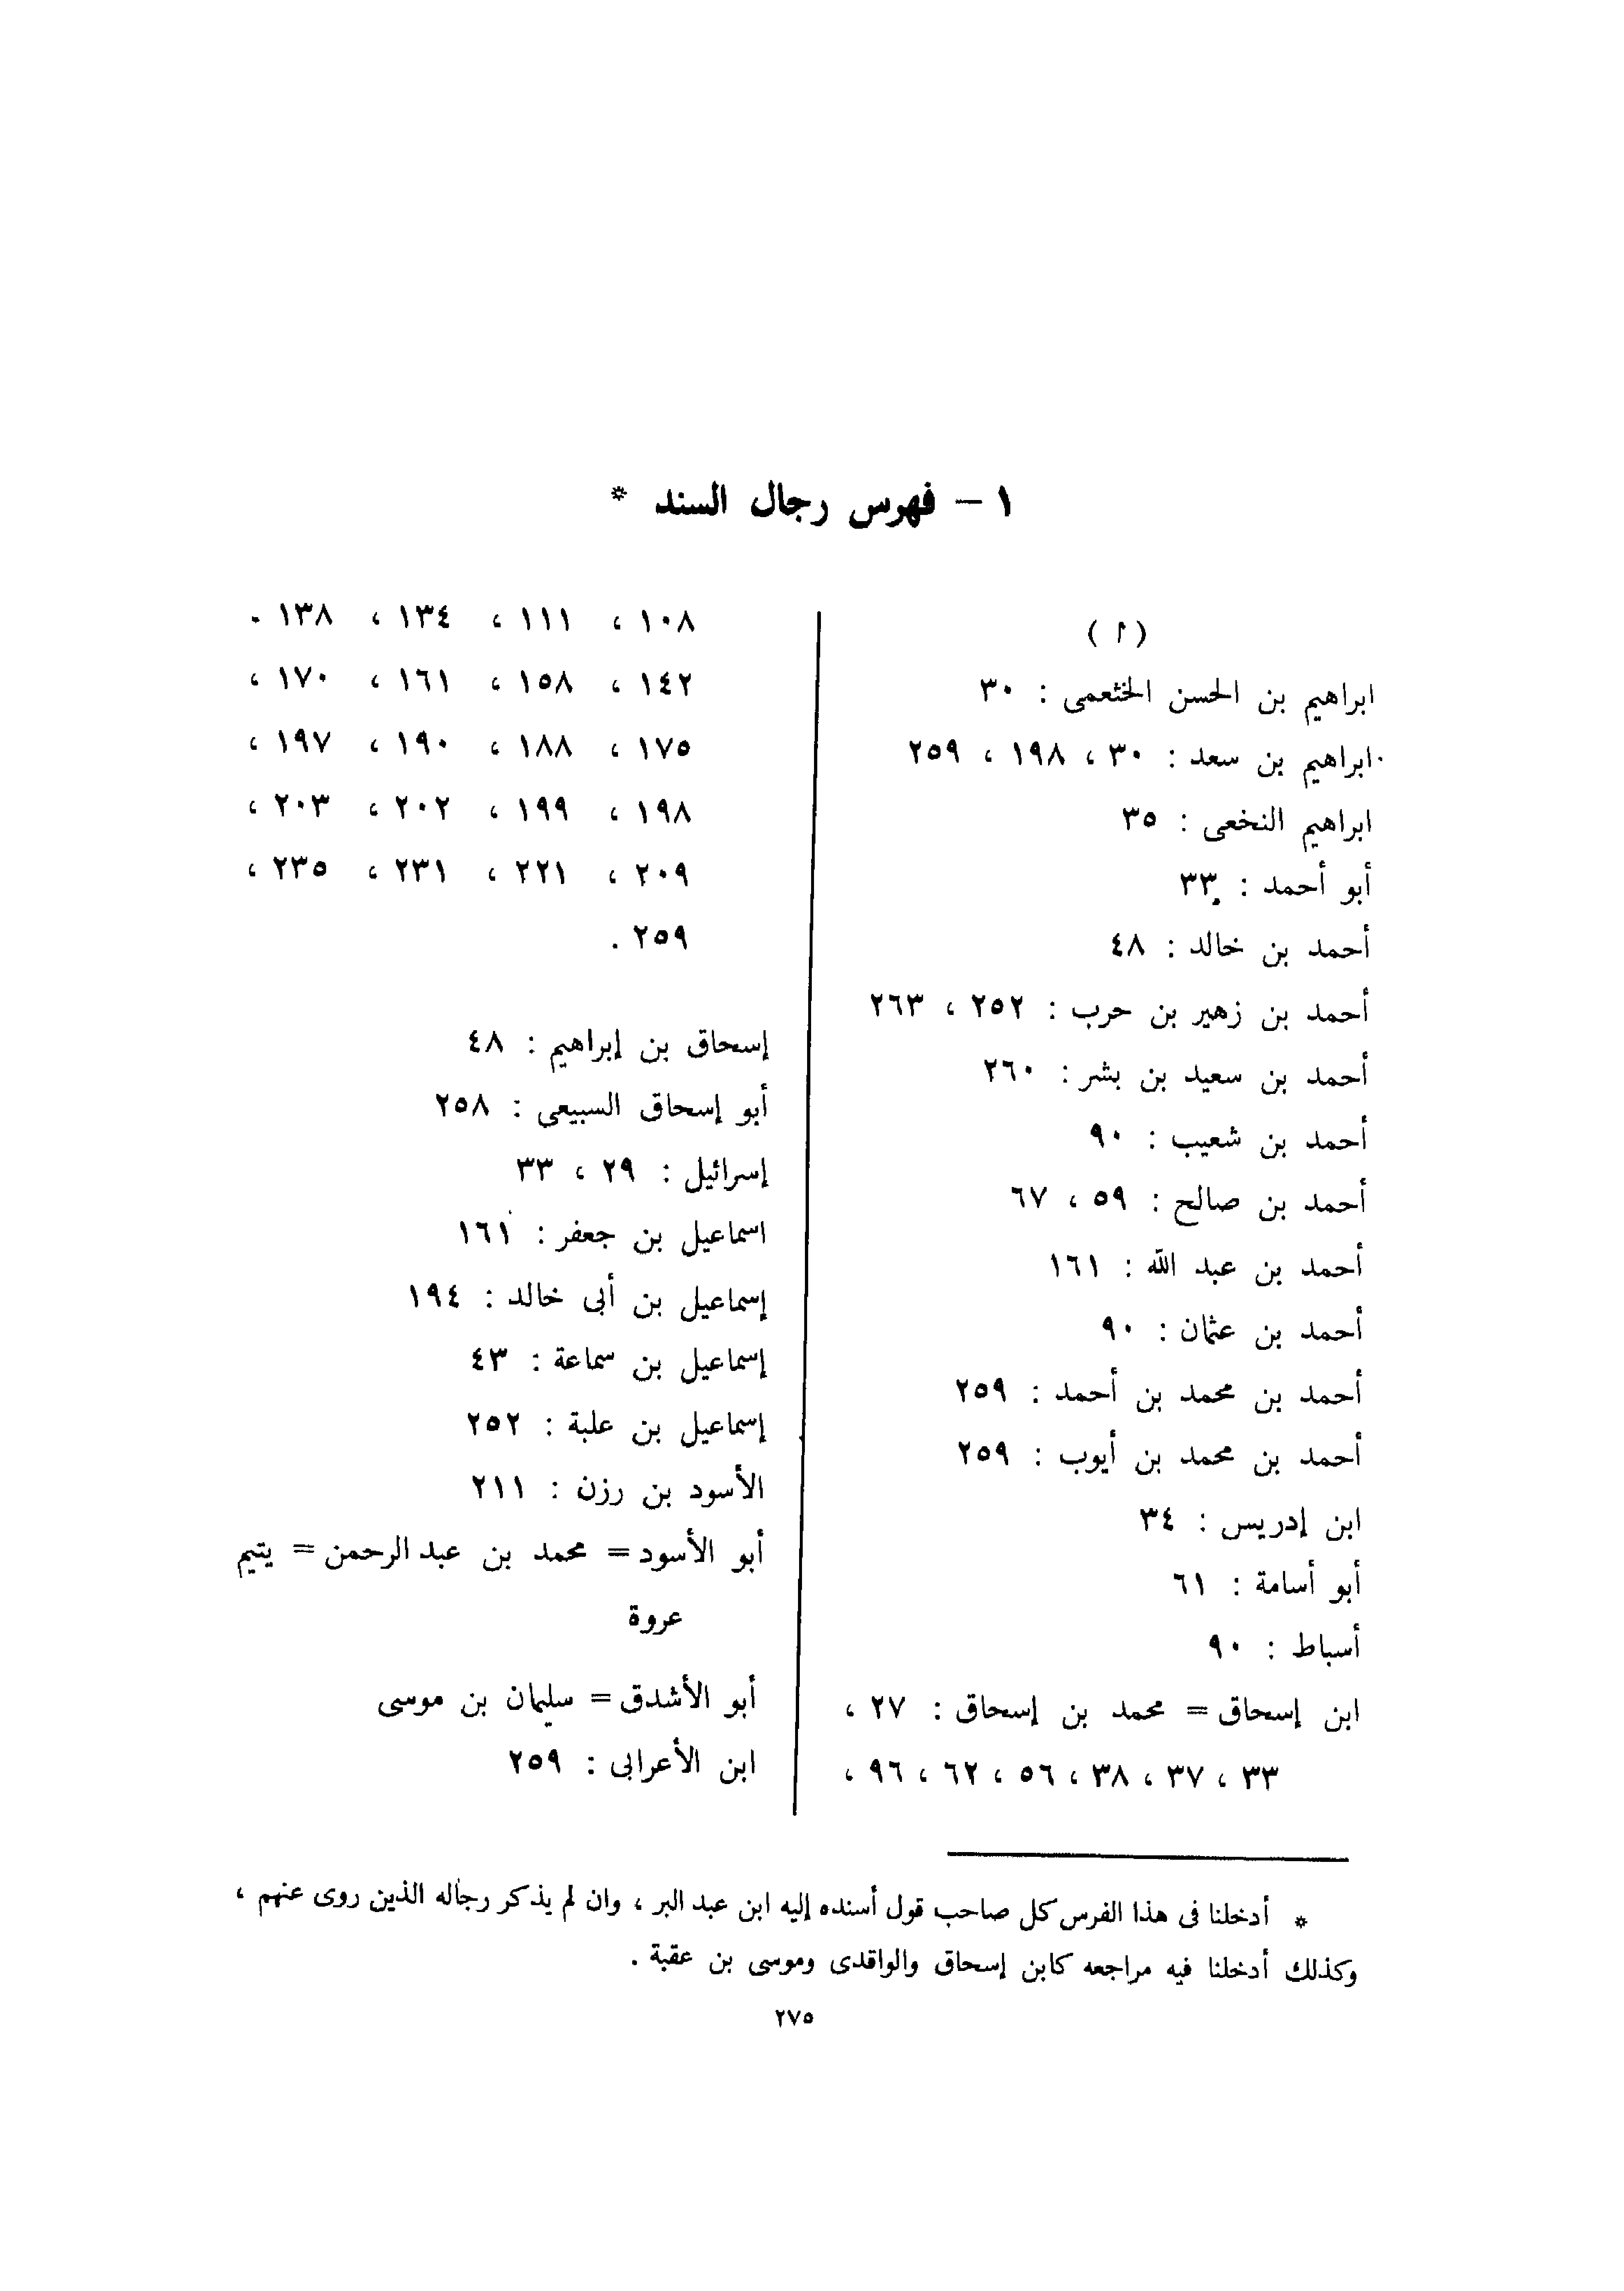 ١ – فهرس رجال السند *
( ١ )
ابراهيم بن الحسن الخثعمى : ٣٠
ابراهيم بن سعد : ٣٠ ، ١٩٨ ، ٢٥٩
ابراهيم النخعى : ٣٥
أبو أحمد : ٣٣
أحمد بن خالد : ٤٨
أحمد بن زهير بن حرب : ٢٥٢ ، ٢٦٣
أحمد بن سعيد بن بشر : ٢٦٠
أحمد بن شعيب : ٩٠
أحمد بن صالح : ٥٩ ، ٦٧
أحمد بن عبد الله : ١٦١
أحمد بن عثمان : ٩٠
أحمد بن محمد بن أحمد : ٢٥٩
أحمد بن محمد بن أيوب : ٢٥٩
ابن إدريس : ٣٤
أبو أسامة : ٦١
أسباط : ٩٠
ابن إسحاق = محمد بن إسحاق : ٢٧ ،
٣٣ ، ٣٧ ، ٣٨ ، ٥٦ ، ٦٢ ، ٩٦ ،
١٠٨ ، ١١١ ، ١٣٤ ، ١٣٨ .
١٤٢ ، ١٥٨ ، ١٦١ ، ١٧٠ ،
١٧٥ ، ١٨٨ ، ١٩٠ ، ١٩٧ ،
١٩٨ ، ١٩٩ ، ٢٠٢ ، ٢٠٣ ،
٢٠٩ ، ٢٢١ ، ٢٣١ ، ٢٣٥ ،
٢٥٩ .
إسحاق بن إبراهيم : ٤٨
أبو إسحاق السبيعى : ٢٥٨
إسرائيل : ٢٩ ، ٣٣
اسماعيل بن جعفر : ١٦١
إسماعيل بن أبى خالد : ١٩٤
إسماعيل بن سماعة : ٤٣
إسماعيل بن علبة : ٢٥٢
الأسود بن رزن : ٢١١
أبو الأسود = محمد بن عبد الرحمن = يتيم
عروة
أبو الأشدق = سليمان بن موسى
ابن الأعرابى : ٢٥٩
* أدخلنا فى هذا الفرس كل صاحب قول أسنده إليه ابن عبد البر ، وان لم يذكر رجاله الذين روى عنهم ،
وكذلك أدخلنا فيه مراجعه كابن إسحاق والواقدى وموسى بن عقبة .
٢٧٥